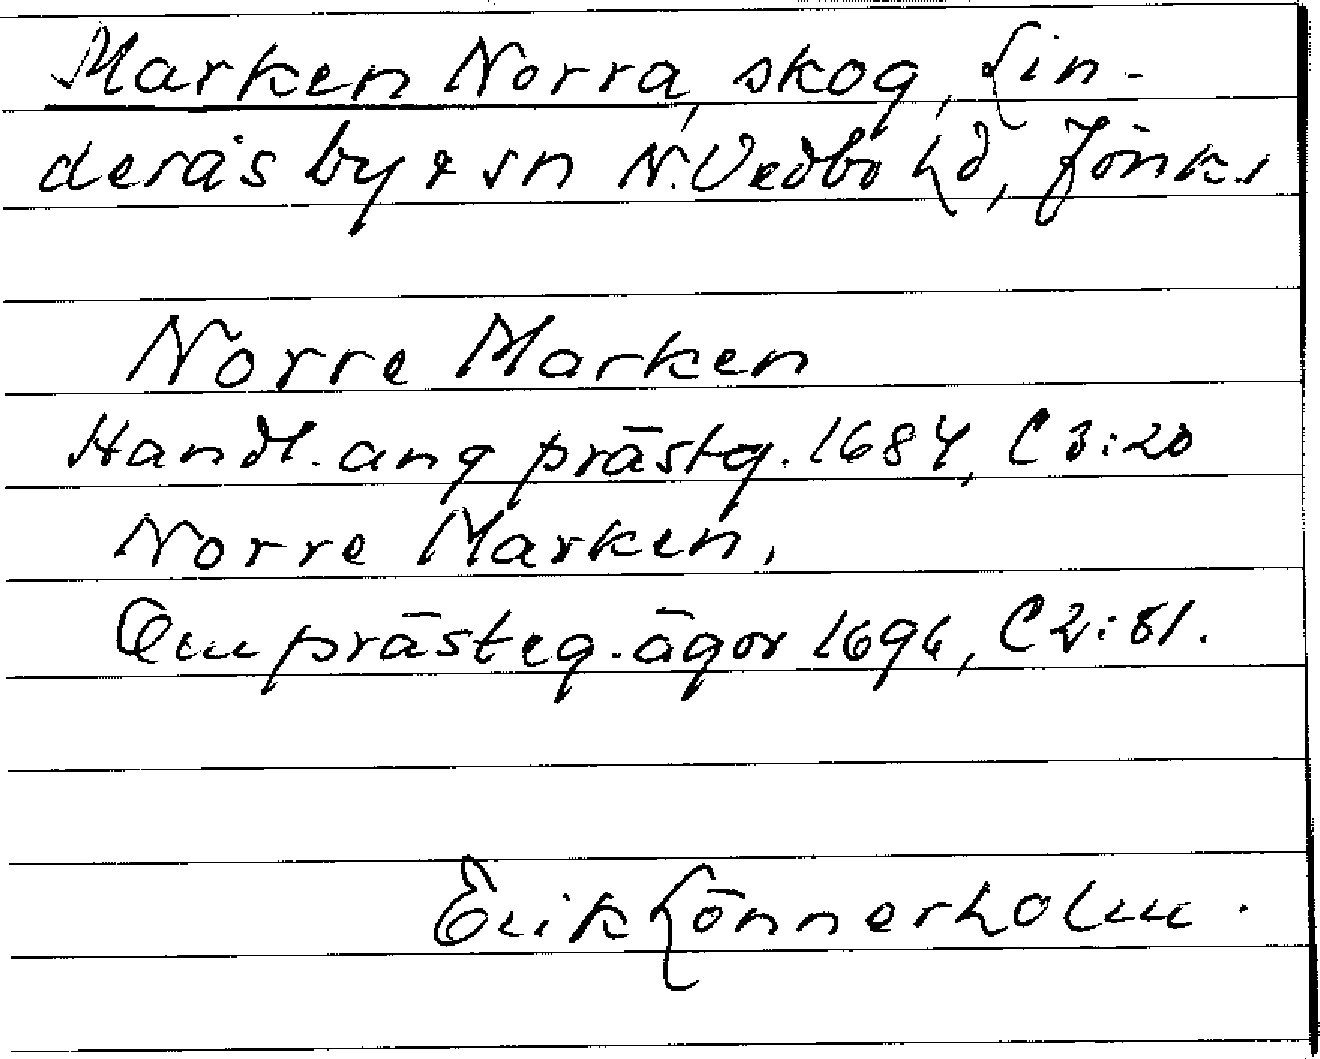 Marken Norra, skog, Lin-
derås by & sn N. Vedbo hd, Jönk.
Norre Marken
Handl. ang prästg. 1684, C 3:20
Norre Marken,
Om prästeg. ägor 1696, C 2:81.
Erik Lönnerholm.